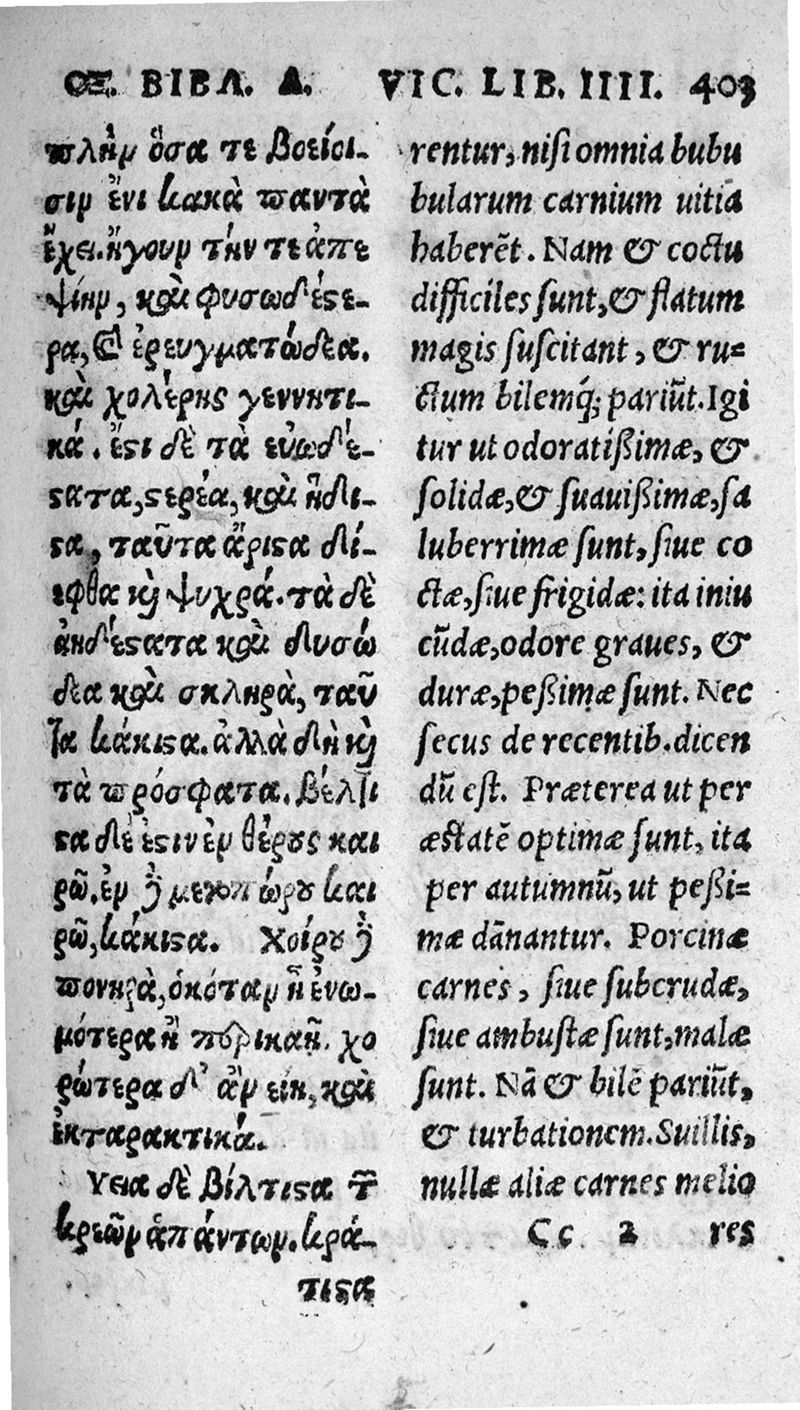 ΟΞ. ΒΙΒΛ. Δ. VIC. LIB. IIII. 403
πλὴν ὅσα τε βοείοι-
σιν ἔνι κακὰ παντὰ
ἔχει. ἤγουν τήν τε ἀπε
ψίην, καὶ φυσωδέστε-
ρα, καὶ ἐρευγματώδεα.
καὶ χολέρης γεννητι-
κά. ἔστι δὲ τὰ εὐωδέ-
στατα, στερέα, καὶ ἥδι-
στα, ταῦτα ἄριστα δί-
εφθα καὶ ψυχρά. τὰ δὲ
ἀηδέστατα καὶ δυσώ
δεα καὶ σκληρὰ, ταῦ
τα κάκιστα. ἀλλὰ δὴ καὶ
τὰ πρόσφατα. βέλτι
στα δέ ἐστιν ἐν θέρους και
ρῷ. ἐν δὲ μετοπώρου και
ρῷ, κάκιστα. Χοίρου δὲ
πονηρὰ, ὁκόταν ᾖ ἐνω-
μότερα ἢ περικαῆ. χο
ρώτερα δ' ἂν εἴη, καὶ
ἐκταρακτικά.
Υεια δὲ βέλτιστα τῶν
κρεῶν ἁπάντων. κρά-
τιστα
rentur, nisi omnia bubu
bularum carnium uitia
haberēt. Nam & coctu
difficiles sunt, & flatum
magis suscitant, & ru=
ctum bilemq́; pariūt. Igi
tur ut odoratißimæ, &
solidæ, & suauißimæ, sa
luberrimæ sunt, siue co
ctæ, siue frigidæ: ita iniu
cūdæ, odore graues, &
duræ, peßimæ sunt. Nec
secus de recentib. dicen
dū est. Præterea ut per
æstatē optimæ sunt, ita
per autumnū, ut peßi=
mæ dānantur. Porcinæ
carnes, siue subcrudæ,
siue ambustæ sunt, malæ
sunt. Nā & bilē pariūt,
& turbationem. Suillis,
nullæ aliæ carnes melio
Cc 2 res